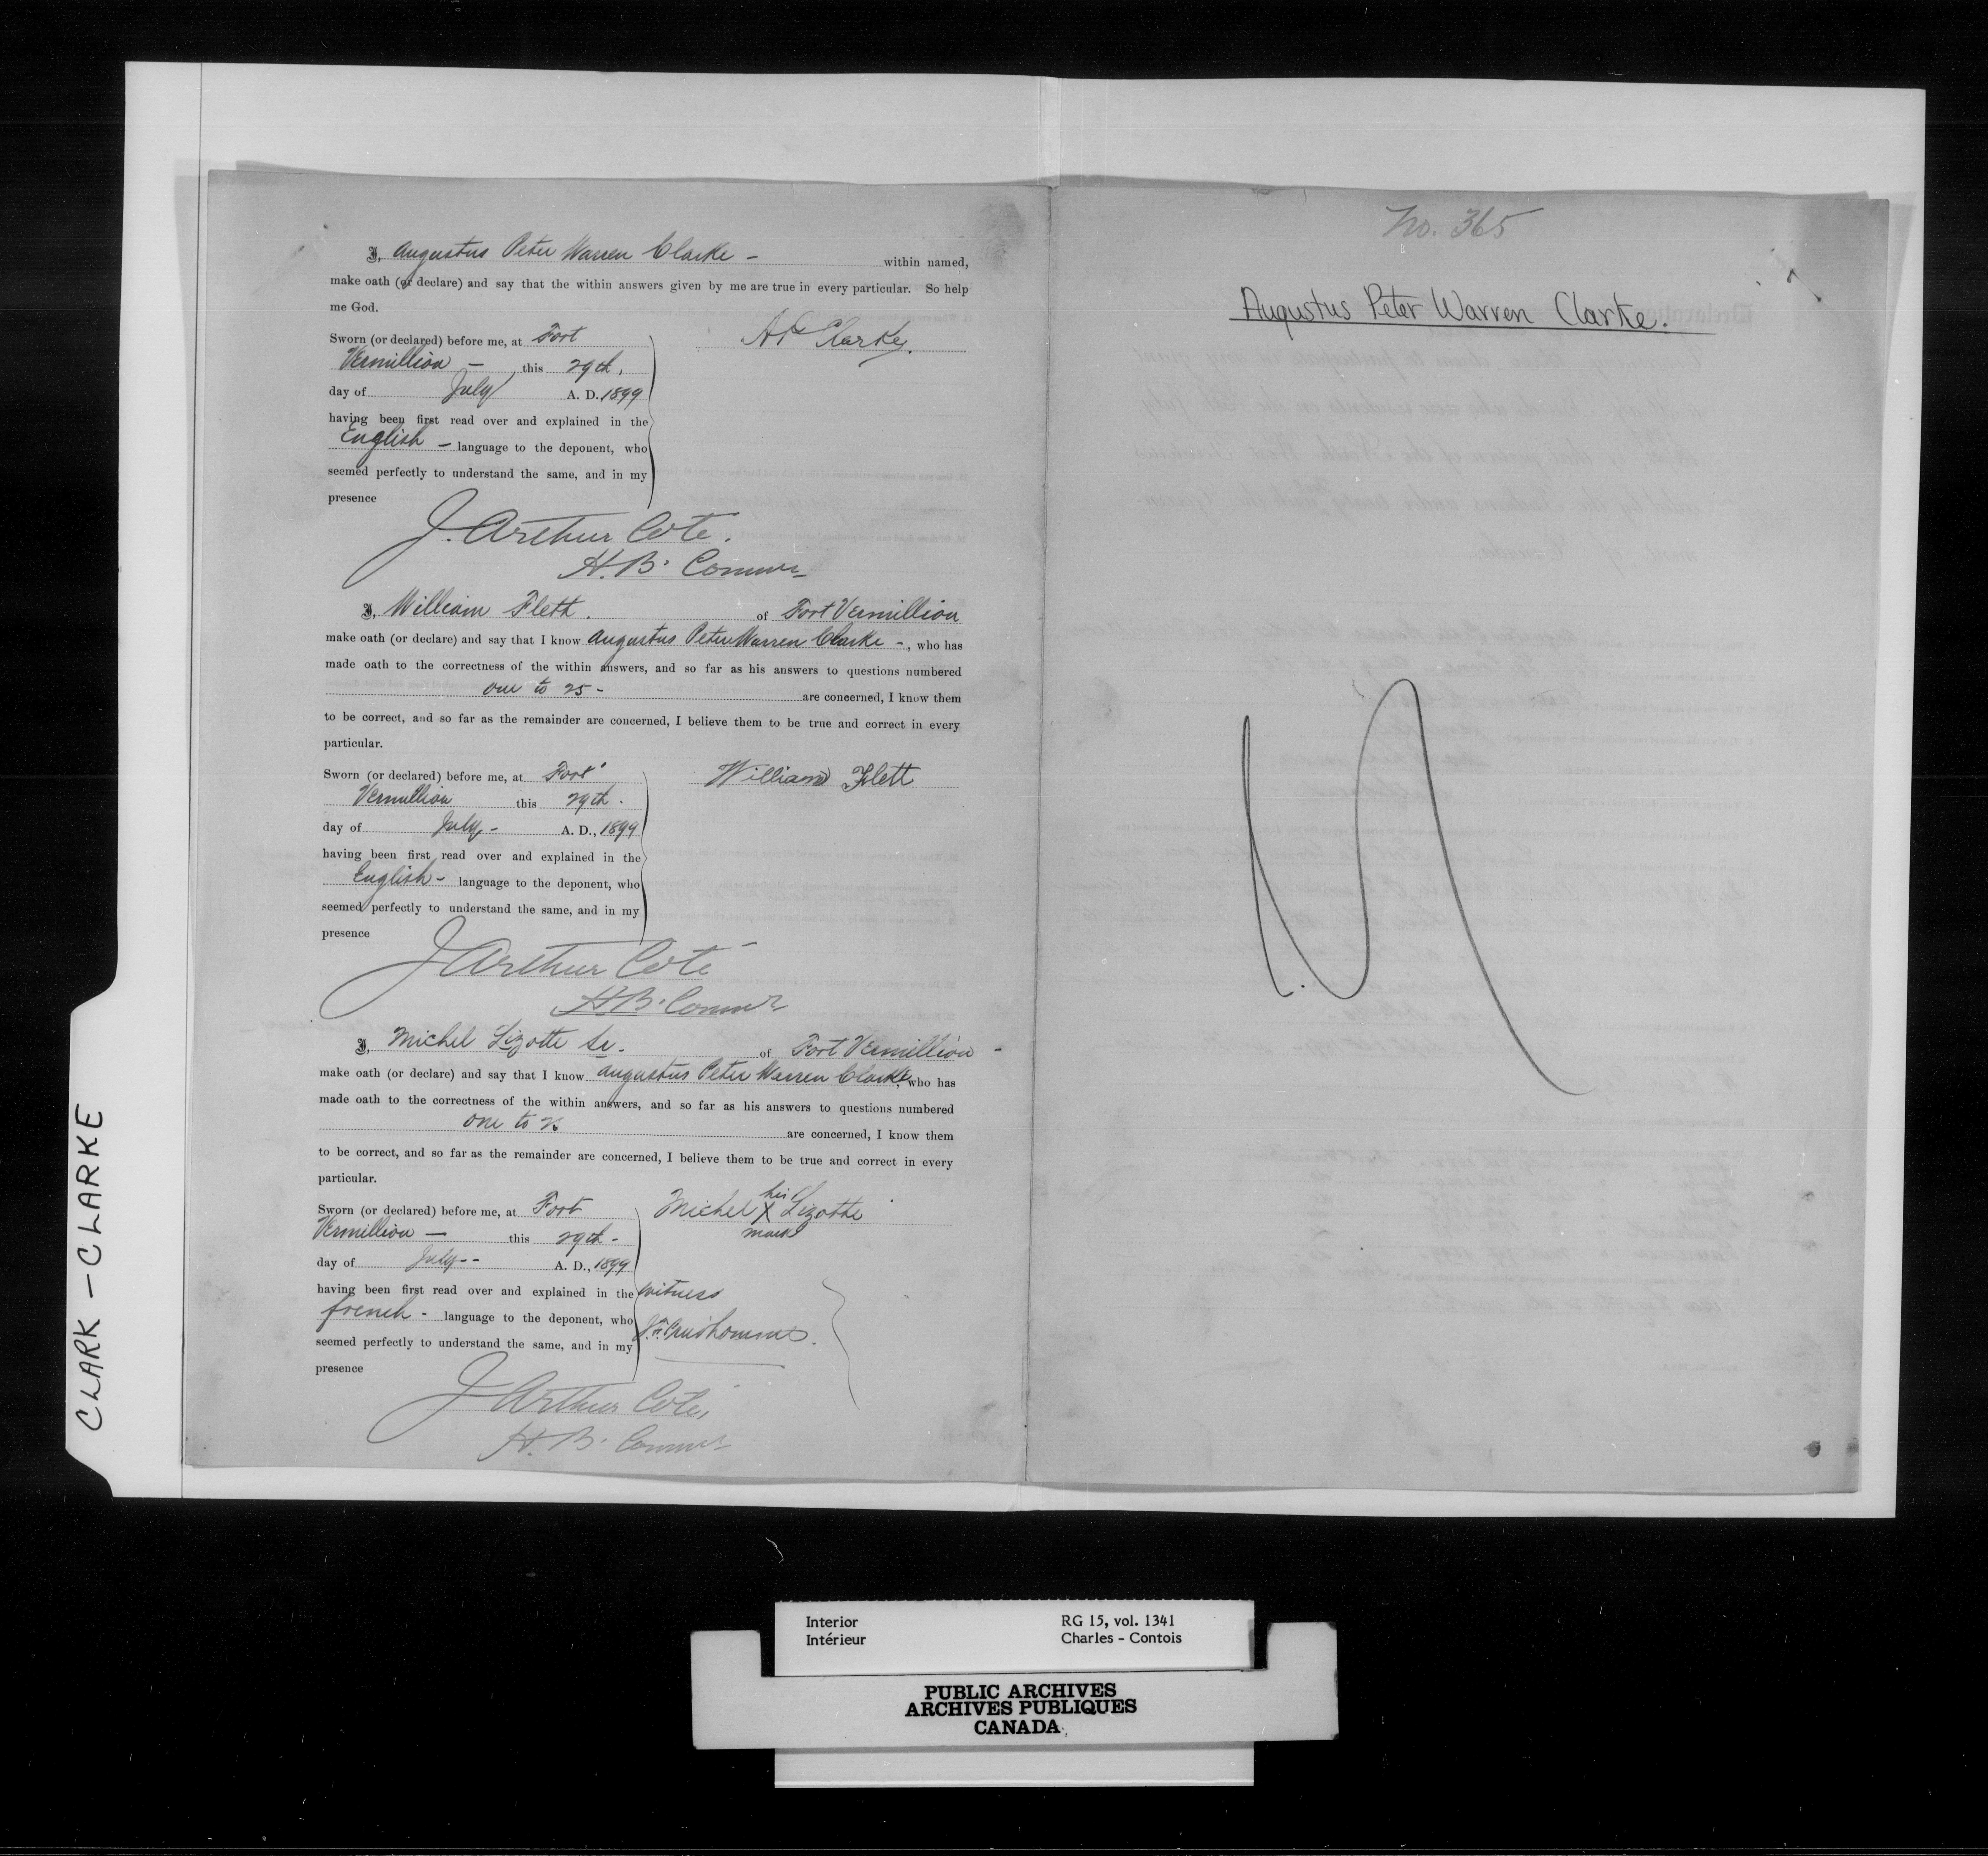 I, Augustus Peter Warren Clarke - within named,
make oath (or declare) and say that the within answers given by me are true in every particular. So help
me God.
Sworn (or declared) before me, at Fort
Vermillion - this 29th.
day of July A. D. 1899
having been first read over and explained in the
English - language to the deponent, who
seemed perfectly to understand the same, and in my
presence
Clarke.
J. Arthur Coté.
H.B.
I, William Flett. of Fort Vermillion
make oath (or declare) and say that I know Augustus Peter Warren Clarke -, who has
made oath to the correctness of the within answers, and so far as his answers to questions numbered
one to 25 - are concerned, I know them
to be correct, and so far as the remainder are concerned, I believe them to be true and correct in every
particular.
Sworn (or declared) before me, at Fort
Vermillion this 29th.
day of July - A. D., 1899
having been first read over and explained in the
English - language to the deponent, who
seemed perfectly to understand the same, and in my
presence
William Flett
J Arthur Coté
H.B.
I, Michel Lizotte Sr. of Fort Vermillion -
make oath (or declare) and say that I know Augustus Peter Warren Clarke, who has
made oath to the correctness of the within answers, and so far as his answers to questions numbered
one to are concerned, I know them
to be correct, and so far as the remainder are concerned, I believe them to be true and correct in every
particular.
Sworn (or declared) before me, at Fort
Vermillion - this 29th -
day of July - - A. D., 1899
having been first read over and explained in the
french - language to the deponent, who
seemed perfectly to understand the same, and in my
presence
his
Michel X Lizotte
mark
witness
Prudhomme.
J Arthur Coté,
H. B.
No. 365
Augustus Peter Warren Clarke.
CLARK - CLARKE
Interior RG 15, vol. 1341
Intérieur Charles - Contois
PUBLIC ARCHIVES
ARCHIVES PUBLIQUES
CANADA